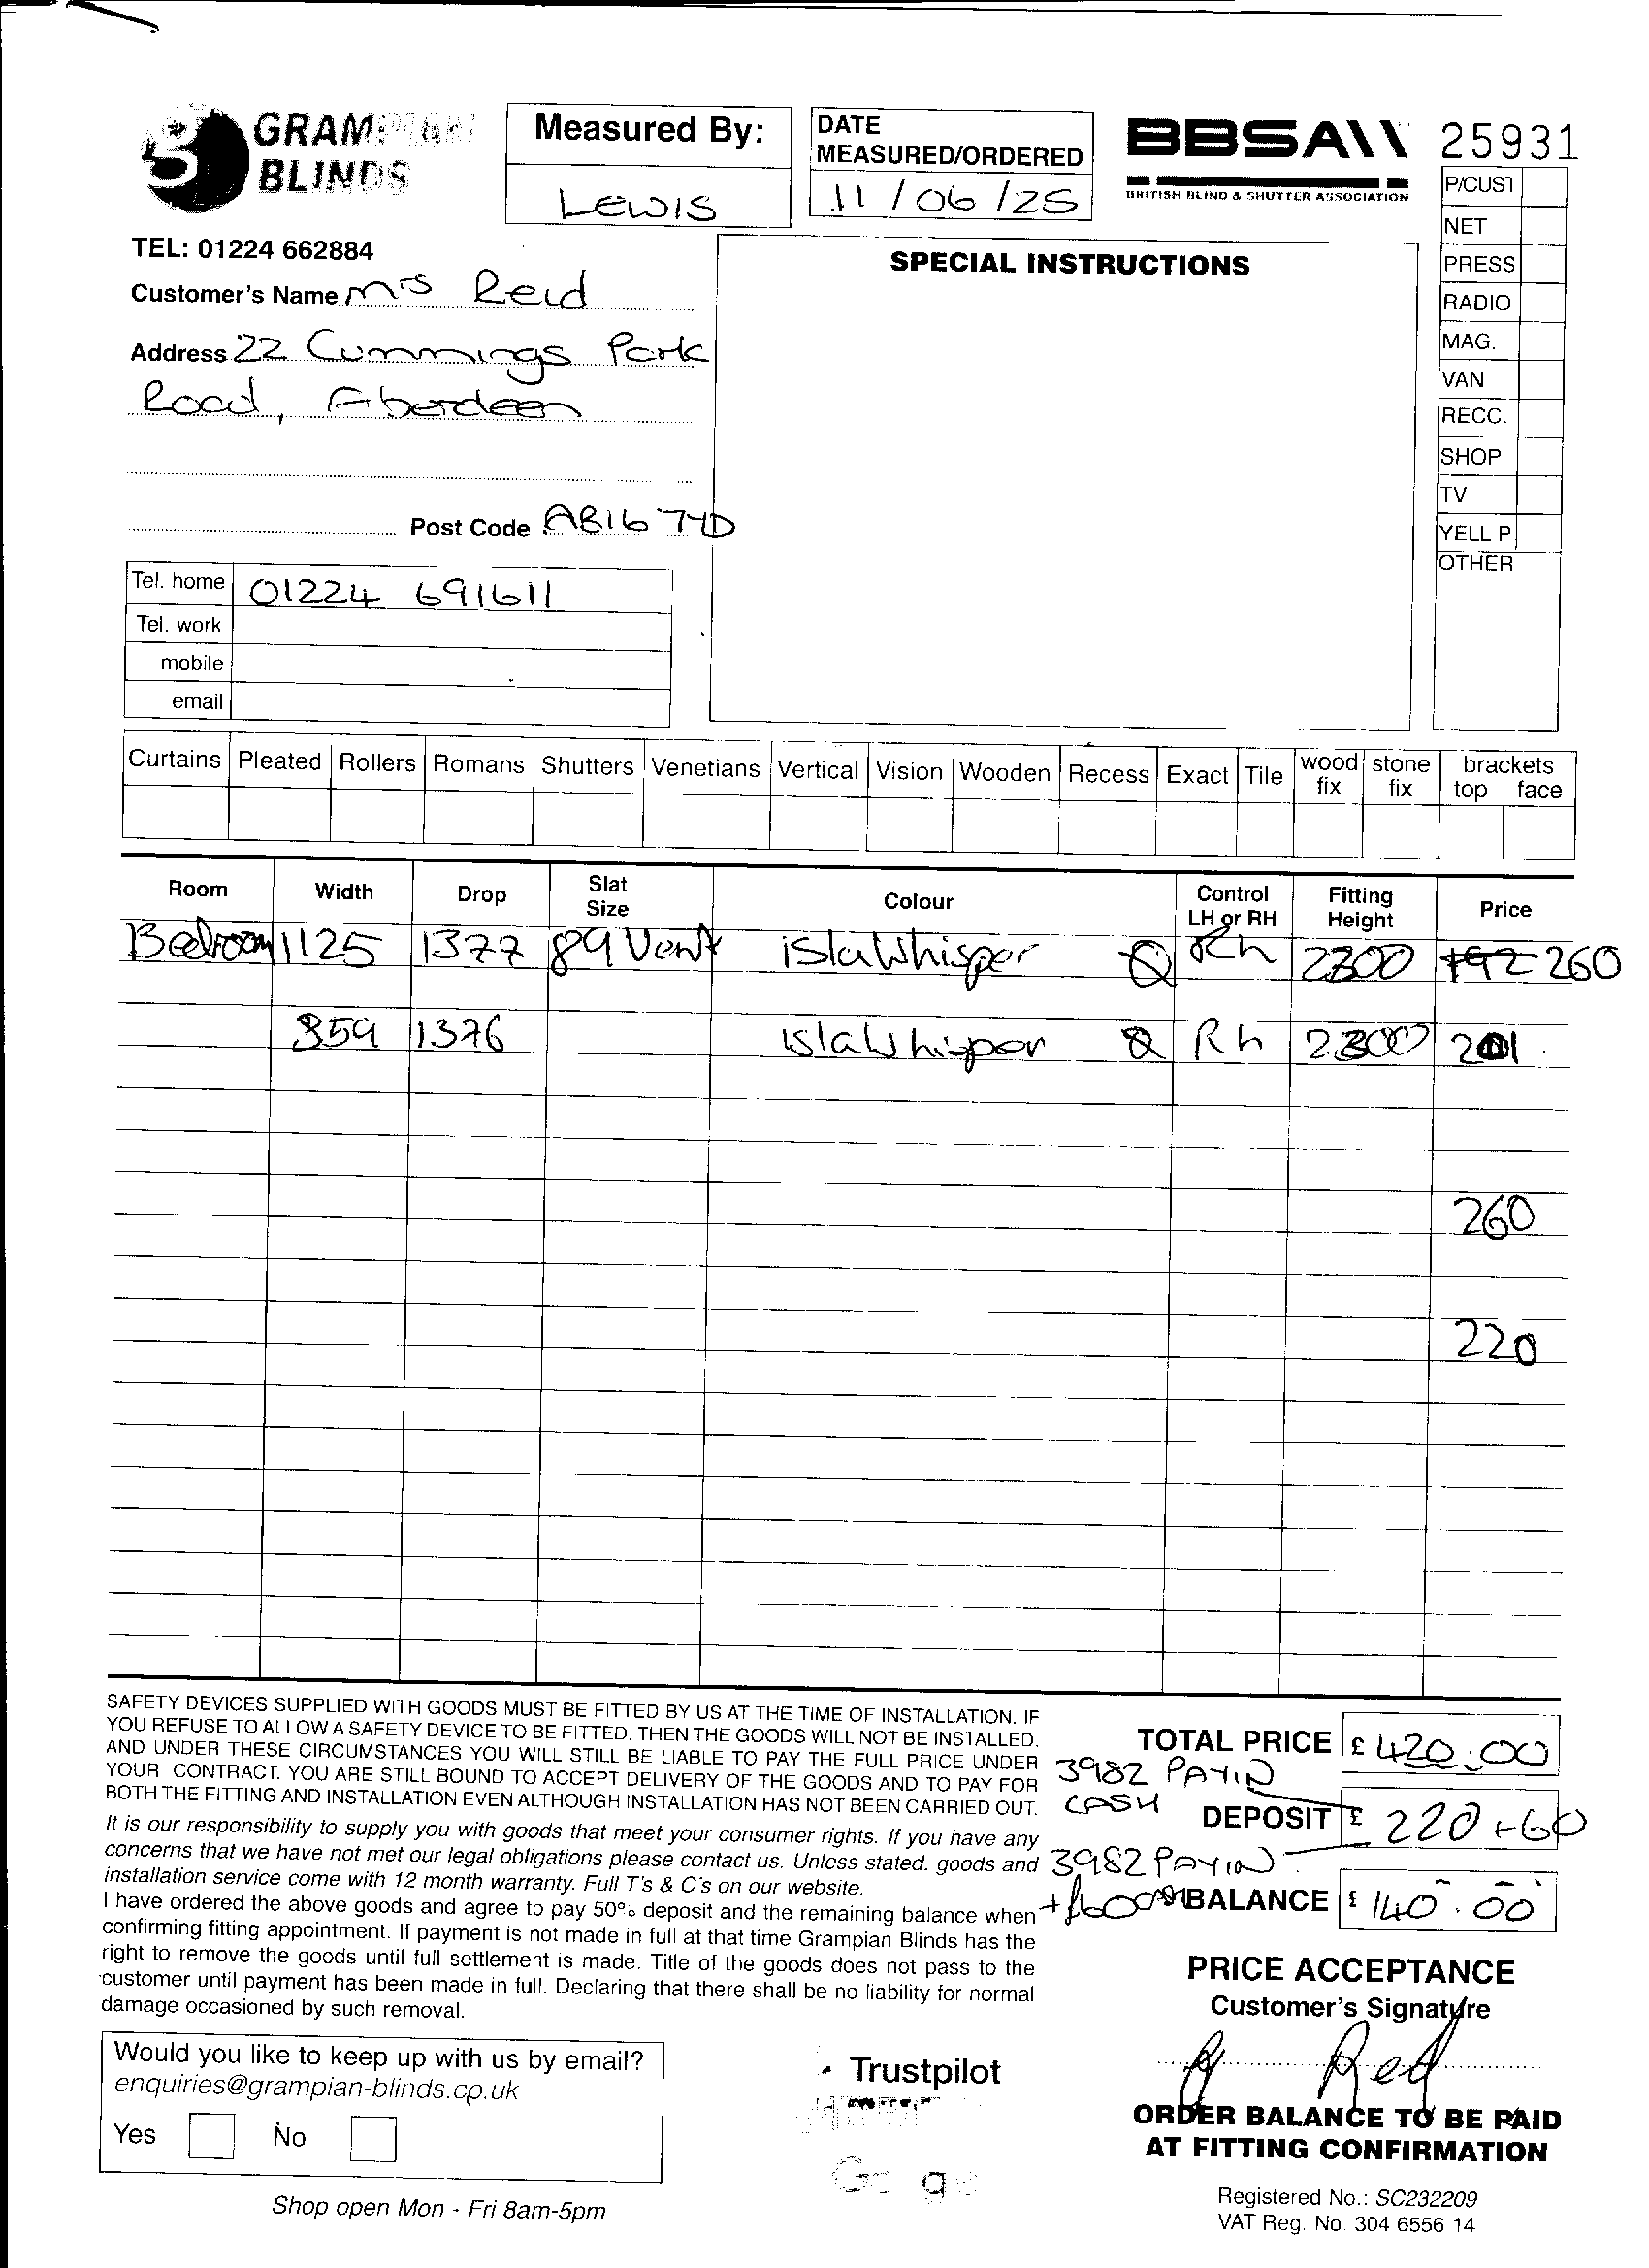 GRAMPIAN
BLINDS
Measured By:
Lewis
DATE
MEASURED/ORDERED
11/06/25
BBSA
BRITISH BLIND & SHUTTER ASSOCIATION
25931
P/CUST
NET
PRESS
RADIO
MAG.
VAN
RECC.
SHOP
TV
YELL P
OTHER
TEL: 01224 662884
Customer's Name Mrs Reid
Address 22 Cummings Park
Road, Aberdeen
Post Code AB16 7YD
SPECIAL INSTRUCTIONS
Tel. home 01224 691611
Tel. work
mobile
email
Curtains Pleated Rollers Romans Shutters Venetians Vertical Vision Wooden Recess Exact Tile wood fix stone fix brackets top face
Room Width Drop Slat Size Colour Control LH or RH Fitting Height Price
Bedroom 1125 1377 89 Vert isla Whisper Rh 2300 192 260
859 1376 isla Whisper Rh 2300 201
260
220
SAFETY DEVICES SUPPLIED WITH GOODS MUST BE FITTED BY US AT THE TIME OF INSTALLATION. IF
YOU REFUSE TO ALLOW A SAFETY DEVICE TO BE FITTED. THEN THE GOODS WILL NOT BE INSTALLED.
AND UNDER THESE CIRCUMSTANCES YOU WILL STILL BE LIABLE TO PAY THE FULL PRICE UNDER
YOUR CONTRACT. YOU ARE STILL BOUND TO ACCEPT DELIVERY OF THE GOODS AND TO PAY FOR
BOTH THE FITTING AND INSTALLATION EVEN ALTHOUGH INSTALLATION HAS NOT BEEN CARRIED OUT.
It is our responsibility to supply you with goods that meet your consumer rights. If you have any
concerns that we have not met our legal obligations please contact us. Unless stated. goods and
installation service come with 12 month warranty. Full T's & C's on our website.
I have ordered the above goods and agree to pay 50% deposit and the remaining balance when
confirming fitting appointment. If payment is not made in full at that time Grampian Blinds has the
right to remove the goods until full settlement is made. Title of the goods does not pass to the
customer until payment has been made in full. Declaring that there shall be no liability for normal
damage occasioned by such removal.
TOTAL PRICE £ 420.00
3982 PAYIN
CASH
DEPOSIT £ 220+60
3982 PAYIN
BALANCE £ 140.00
PRICE ACCEPTANCE
Customer's Signature
Reid
ORDER BALANCE TO BE PAID
AT FITTING CONFIRMATION
Registered No.: SC232209
VAT Reg. No. 304 6556 14
Would you like to keep up with us by email?
enquiries@grampian-blinds.cp.uk
Yes No
Shop open Mon - Fri 8am-5pm
Trustpilot